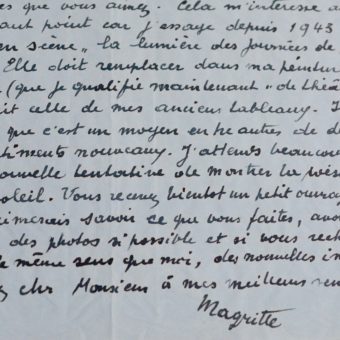 es que vous aimez. Cela m'intéresse a
haut point car j'essaye depuis 1943
en scène" la lumière des journées de
Elle doit remplacer dans ma peintur
(que je qualifie maintenant "de théâ
ait celle de mes anciens tableaux. J
que c'est un moyen entre autres de d
timents nouveaux. J'attends beaucou
nouvelle tentative de montrer la
soleil. Vous recevez bientôt un petit ouvrag
imerais savoir ce que vous faites, avoi
des photos si possible et si vous rech
le même sens que moi, des nouvelles in
ez cher Monsieur à mes meilleurs sen
Magritte